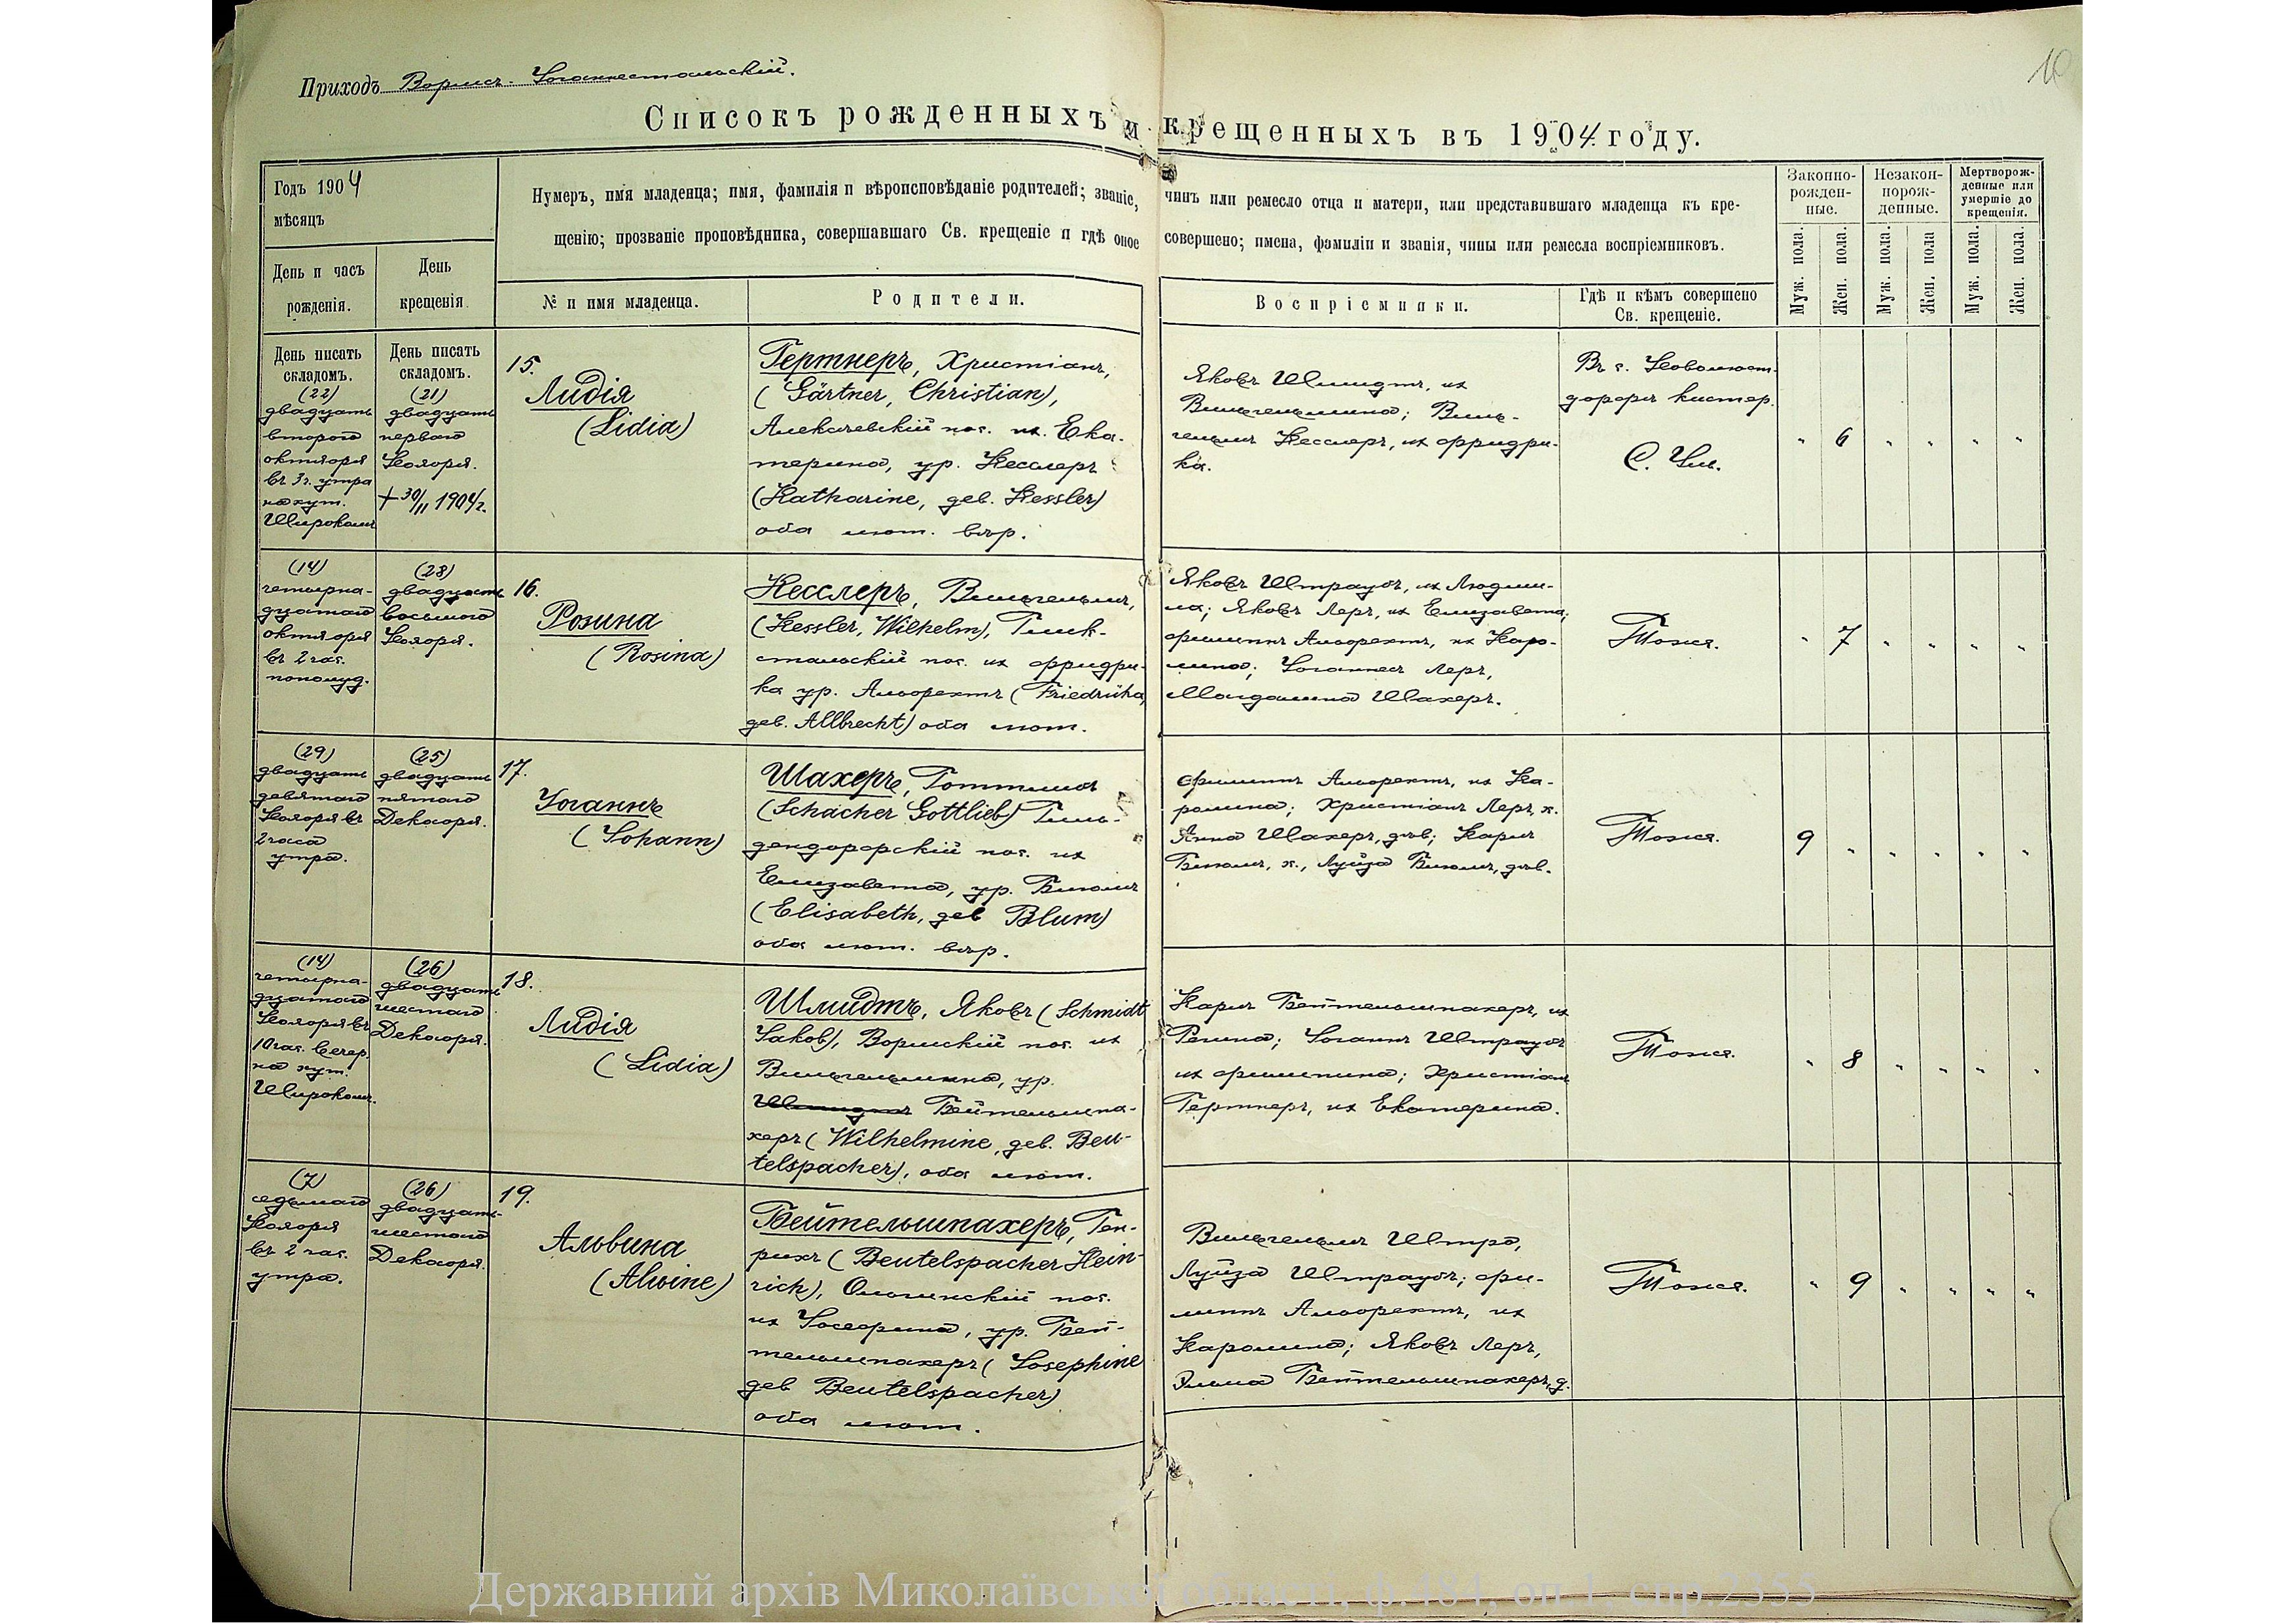 Приходъ Вормсъ-Іоганнестальскій.
10
Списокъ рожденныхъ и крещенныхъ въ 1904 году.
Годъ 1904
мѣсяцъ
Нумеръ, имя младенца; имя, фамилія и вѣроисповѣданіе родителей; званіе, чинъ или ремесло отца и матери, или представившаго младенца къ кре-
щенію; прозваніе проповѣдника, совершавшаго Св. крещеніе и гдѣ оное совершено; имена, фамиліи и званія, чины или ремесла воспріемниковъ.
Законно-
рожден-
ные.
Незакон-
порож-
денные.
Мертворож-
денные или
умершіе до
крещенія.
День и часъ
рожденія.
День
крещенія
№ и имя младенца.
Родители.
Воспріемники.
Гдѣ и кѣмъ совершено
Св. крещеніе.
Муж. пола.
Жен. пола.
Муж. пола.
Жен. пола
Муж. пола.
Жен. пола.
День писать
складомъ.
(22)
двадцать
второго
октября
въ 3 ч. утра
на хут.
Широкомъ
День писать
складомъ.
(21)
двадцать
перваго
Ноября.
+ 30/11 1904 г.
15.
Лидія
(Lidia)
Гертнеръ, Христіанъ,
(Gärtner, Christian),
Алексѣевскій пос. их. Ека-
терина, ур. Кесслеръ
(Katharine, geb. Kessler)
оба лют. вѣр.
Яковъ Шмидтъ, их
Вильгельмина; Виль-
гельмъ Кесслеръ, их Фридри-
ка.
Въ с. Новолюст-
дорфъ кистер.
" 6 " " " "
(14)
четырна-
дцатаго
октября
въ 2 час.
пополуд.
(28)
двадцать
восьмого
Ноября.
16.
Розина
(Rosina)
Кесслеръ, Вильгельмъ,
(Kessler, Wilhelm), Глик-
стальскій пос. их Фридри-
ка ур. Альбрехтъ (Friedricha,
geb. Allbrecht) оба лют.
Яковъ Штраубъ, их Людми-
ла; Яковъ Леръ, их Елизавета;
Филиппъ Альбрехтъ, их Каро-
лина; Іоганнесъ Леръ,
Магдалина Шахеръ.
Тоже.
" 7 " " " "
(29)
двадцать
девятаго
Ноября въ
2 часа
утра.
(25)
двадцать
пятаго
Декабря.
17.
Іоганнъ
(Johann)
Шахеръ, Готтлибъ
(Schacher Gottlieb) Гиль-
дендорфскій пос. их
Елизавета, ур. Блюмъ
(Elisabeth, geb Blum)
оба лют. вѣр.
Филиппъ Альбрехтъ, их Ка-
ролина; Христіанъ Леръ, х.
Анна Шахеръ, дѣв; Карлъ
Блюмъ, х., Луиза Блюмъ, дѣв.
Тоже.
9 " " " " "
(14)
четырна-
дцатаго
Ноября въ
10 час. вечер.
на хут.
Широкомъ.
(26)
двадцать
шестого
Декабря.
18.
Лидія
(Lidia)
Шмидтъ, Яковъ (Schmidt
Jakob), Вормскій пос. их
Вильгельмина, ур.
Шмидтъ Бейтельшпа-
херъ (Wilhelmine, geb. Beu-
telspacher), оба лют.
Карлъ Бейтельшпахеръ, их
Регина; Іоганнъ Штраубъ
их Филипина; Христіанъ
Гертнеръ, их Екатерина.
Тоже.
" 8 " " " "
(7)
седьмаго
Ноября
въ 2 час.
утра.
(26)
двадцать
шестого
Декабря.
19.
Альвина
(Alwine)
Бейтельшпахеръ, Ген-
рихъ (Beutelspacher Hein-
rich), Ольгинскій пос.
их Іосефина, ур. Бей-
тельшпахеръ (Josephine
geb Beutelspacher)
оба лют.
Вильгельмъ Штро,
Луиза Штраубъ; Фи-
липпъ Альбрехтъ, их
Каролина; Яковъ Леръ,
Эльма Бейтельшпахеръ, д.
Тоже.
" 9 " " " "
Державний архів Миколаївської області, ф.484, оп.1, спр.2355